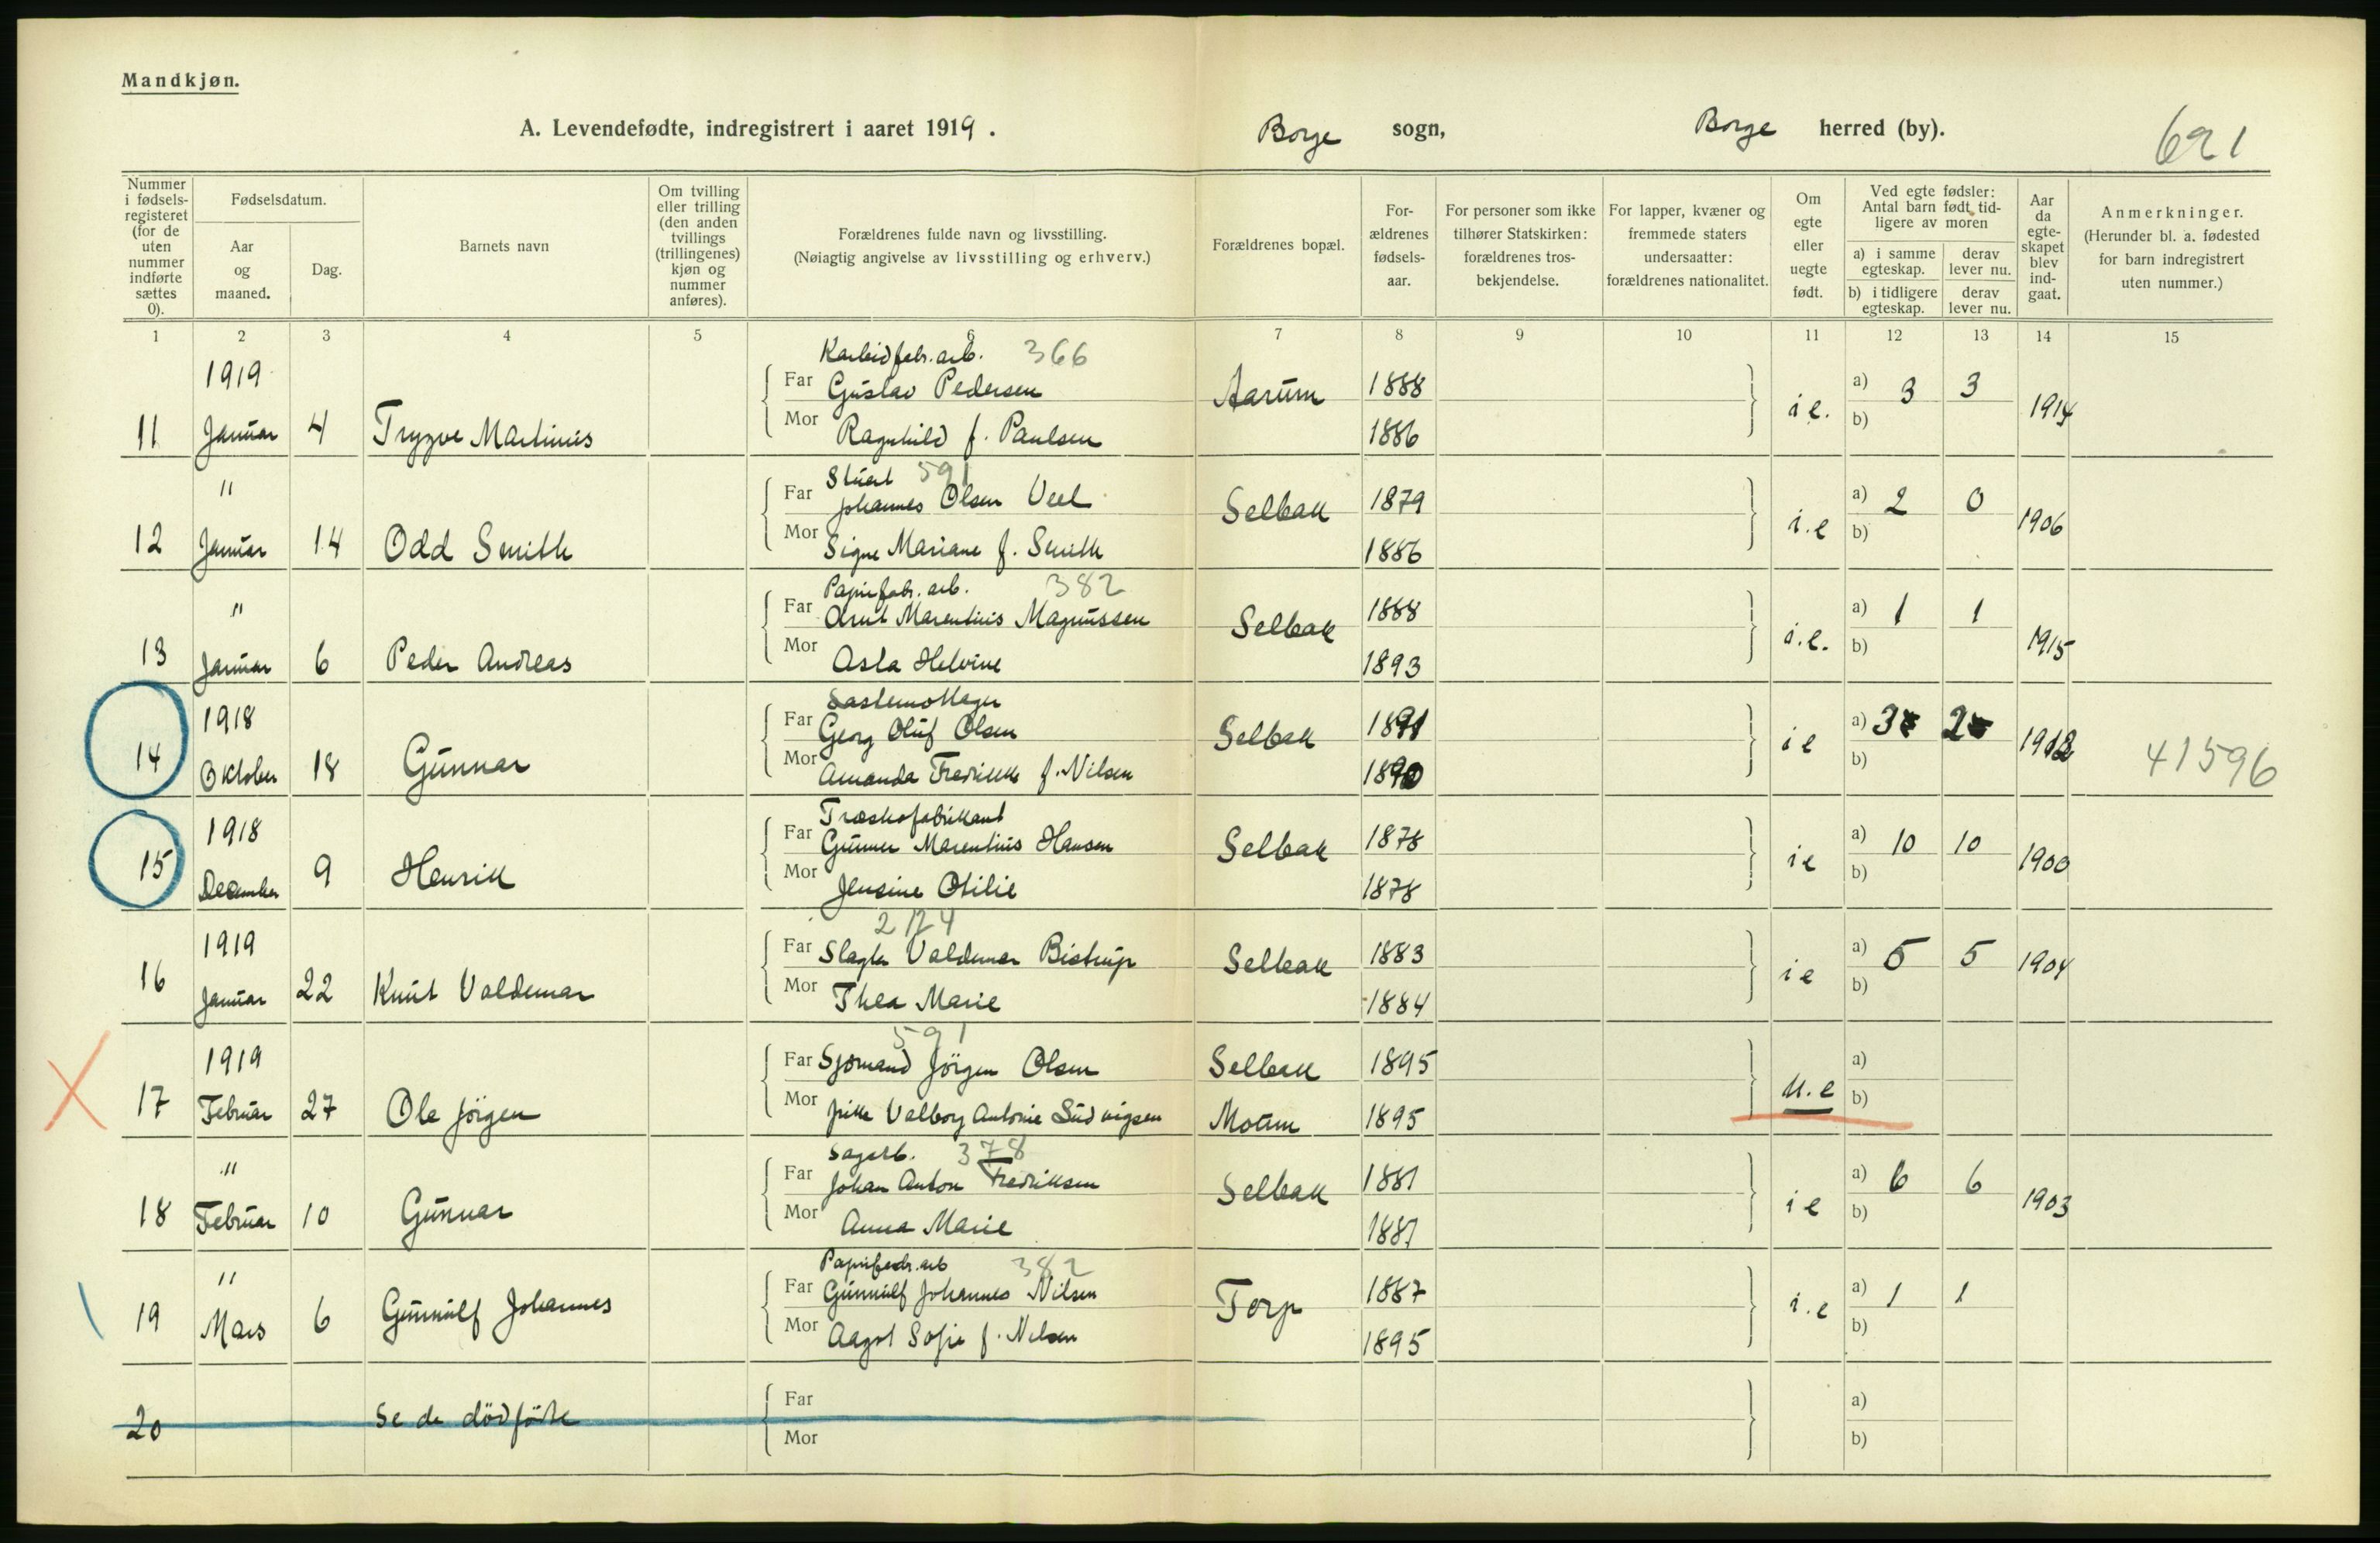 Mandkjøn.
A. Levendefødte, indregistrert i aaret 1919. Borge sogn, Borge herred (by). 691
Nummer i fødselsregisteret (for de uten nummer indførte sættes 0).
Fødselsdatum.
Aar og maaned.
Dag.
Barnets navn
Om tvilling eller trilling (den anden tvillings (trillingenes) kjøn og nummer anføres).
Forældrenes fulde navn og livsstilling.
(Nøiagtig angivelse av livsstilling og erhverv.)
Forældrenes bopæl.
For-ældrenes fødsels-aar.
For personer som ikke tilhører Statskirken: forældrenes tros-bekjendelse.
For lapper, kvæner og fremmede staters undersaatter: forældrenes nationalitet.
Om egte eller uegte født.
Ved egte fødsler: Antal barn født tid-ligere av moren
a) i samme egteskap. derav lever nu.
b) i tidligere egteskap. derav lever nu.
Aar da egte-skapet blev ind-gaat.
Anmerkninger.
(Herunder bl. a. fødested for barn indregistrert uten nummer.)
1 2 3 4 5 6 7 8 9 10 11 12 13 14 15
Karbidfabr. arb. 366
1919 Far Gustav Pedersen Aarum 1888 a) 3 3
11 Januar 4 Trygve Martinius Mor Ragnhild f. Paulsen 1886 i e. b) 1914
Stuert 591
" Far Johannes Olsen Veel Selbak 1879 a) 2 0
12 Januar 14 Odd Smith Mor Signe Mariane f. Smith 1886 i.e b) 1906
Papirfabr. arb. 382
" Far Arnt Marentius Magnussen Selbak 1888 a) 1 1
13 Januar 6 Peder Andreas Mor Asta Helvine 1893 i.e. b) 1915
1918 Far Georg Oluf Olsen Selbak 1891 a) 3 2
14 Oktober 18 Gunnar Mor Amanda Fredrikke f. Nilsen 1890 i e b) 1912 41596
Træskofabrikant
1918 Far Gunner Marentius Hansen Selbak 1878 a) 10 10
15 December 9 Henrik Mor Jensine Otilie 1878 i e b) 1900
2124
1919 Far Slagter Valdemar Bistrup Selbak 1883 a) 5 5
16 Januar 22 Knut Valdemar Mor Thea Marie 1884 i e b) 1904
591
1919 Far Sjømand Jörgen Olsen Selbak 1895 a)
17 Februar 27 Ole Jörgen Mor pike Valborg Antonie Ludvigsen Moum 1895 u.e b)
Sagarb. 378
" Far Johan Anton Fredriksen Selbak 1881 a) 6 6
18 Februar 10 Gunnar Mor Anna Marie 1881 i e b) 1903
Papirfabr. arb 382
" Far Gunnulf Johannes Nilsen Torp 1887 a) 1 1
19 Mars 6 Gunnulf Johannes Mor Aagot Sofie f. Nilsen 1895 i.e b)
Far a)
20 Se de dödfödte Mor b)